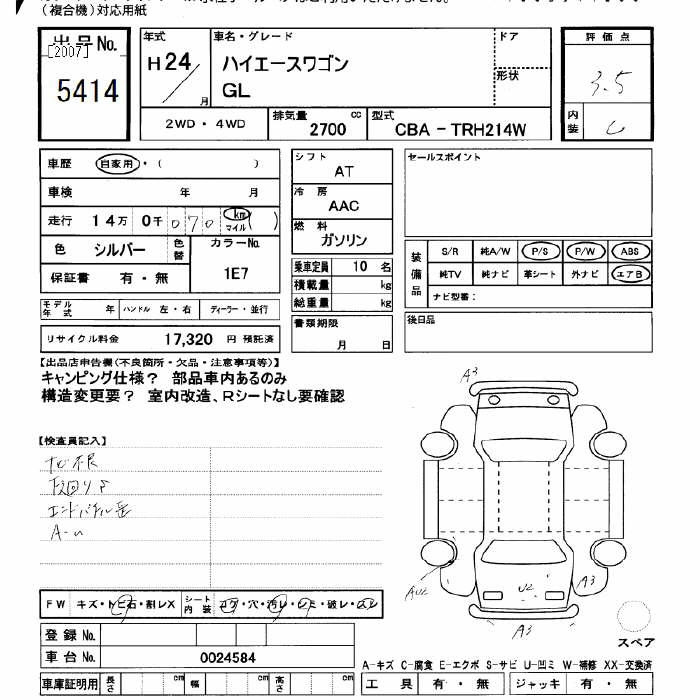 (複合機)対応用紙
出品No.
[2007]
5414
年式
H24
月
車名・グレード
ハイエースワゴン
GL
ドア
形状
評価点
3.5
内装
C
2WD・4WD
排気量 cc
2700
型式
CBA-TRH214W
車歴 自家用・( )
車検 年 月
走行 14万 0千 070 km マイル ( )
色 シルバー 色替
カラーNo.
1E7
保証書 有・無
モデル年式 年 ハンドル 左・右 ディーラー・並行
リサイクル料金 17,320 円 預託済
シフト
AT
冷房
AAC
燃料
ガソリン
乗車定員 10 名
積載量 kg
総重量 kg
書類期限
月 日
セールスポイント
装備品
S/R 純A/W P/S P/W ABS
純TV 純ナビ 革シート 外ナビ エアB
ナビ型番:
後日品
【出品店申告欄(不良箇所・欠品・注意事項等)】
キャンピング仕様? 部品車内あるのみ
構造変更要? 室内改造、Rシートなし要確認
【検査員記入】
A3
AU2
U2
A3
A3
スペア
FW キズ・トビ石・割レX シート内装 コゲ・穴・汚レ・シミ・破レ・スレ
登録No.
車台No. 0024584
車庫証明用 長さ cm 幅 cm 高さ cm
A-キズ C-腐食 E-エクボ S-サビ U-凹ミ W-補修 XX-交換済
工具 有・無 ジャッキ 有・無